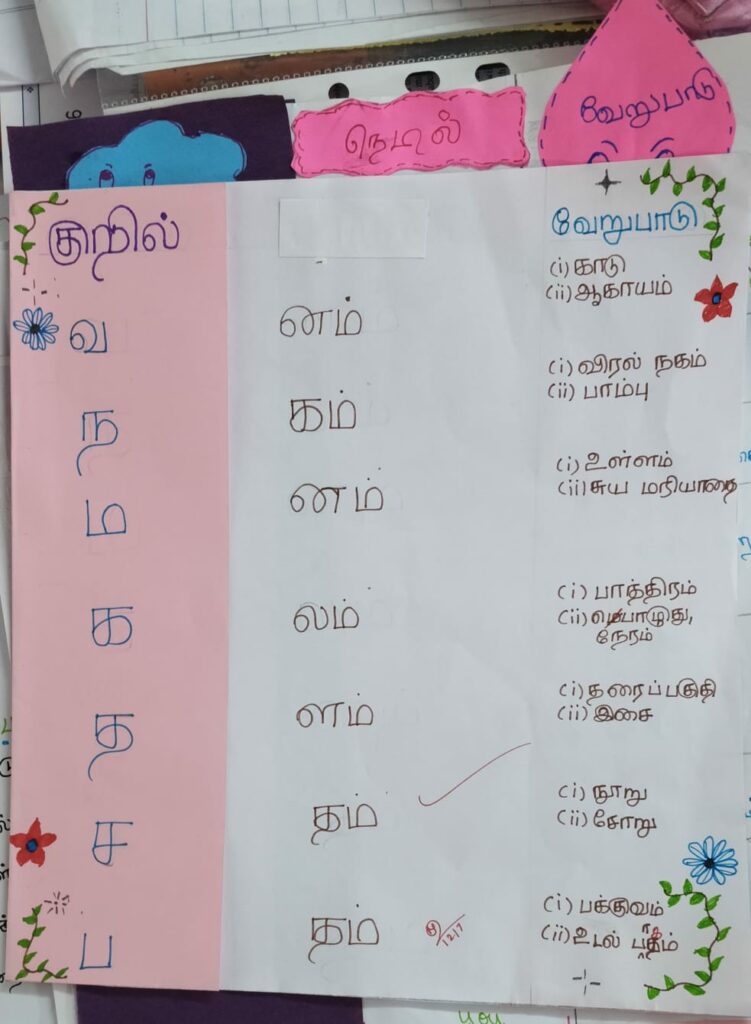 நெடில்
வேறுபாடு
குறில்
வேறுபாடு
வ னம் (i) காடு
(ii) ஆகாயம்
ந கம் (i) விரல் நகம்
(ii) பாம்பு
ம னம் (i) உள்ளம்
(ii) சுய மரியாதை
க லம் (i) பாத்திரம்
(ii) பொழுது,
நேரம்
த ளம் (i) தரைப்பகுதி
(ii) இசை
ச தம் (i) நூறு
(ii) சோறு
ப தம் (i) பக்குவம்
(ii) உடல் பாகம்
12.17
you